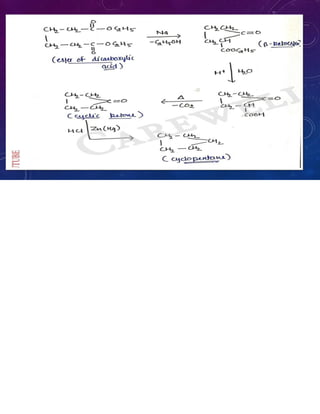 O
CH₂ - CH₂ — C — OC₂H₅
CH₂ — CH₂ — C — OC₂H₅
O
(ester of dicarboxylic
acid)
Na
-C₂H₅OH
CH₂ CH₂
C=O
CH₂ CH
COOC₂H₅
(β-ketoester
H⁺ H₂O
CH₂-CH₂
C=O
CH₂ — CH
COOH
Δ
-CO₂
CH₂-CH₂
C=O
CH₂ — CH₂
(cyclic ketone)
HCl Zn(Hg)
CH₂ - CH₂
CH₂
CH₂ — CH₂
(cyclopentane)
CAREWELL